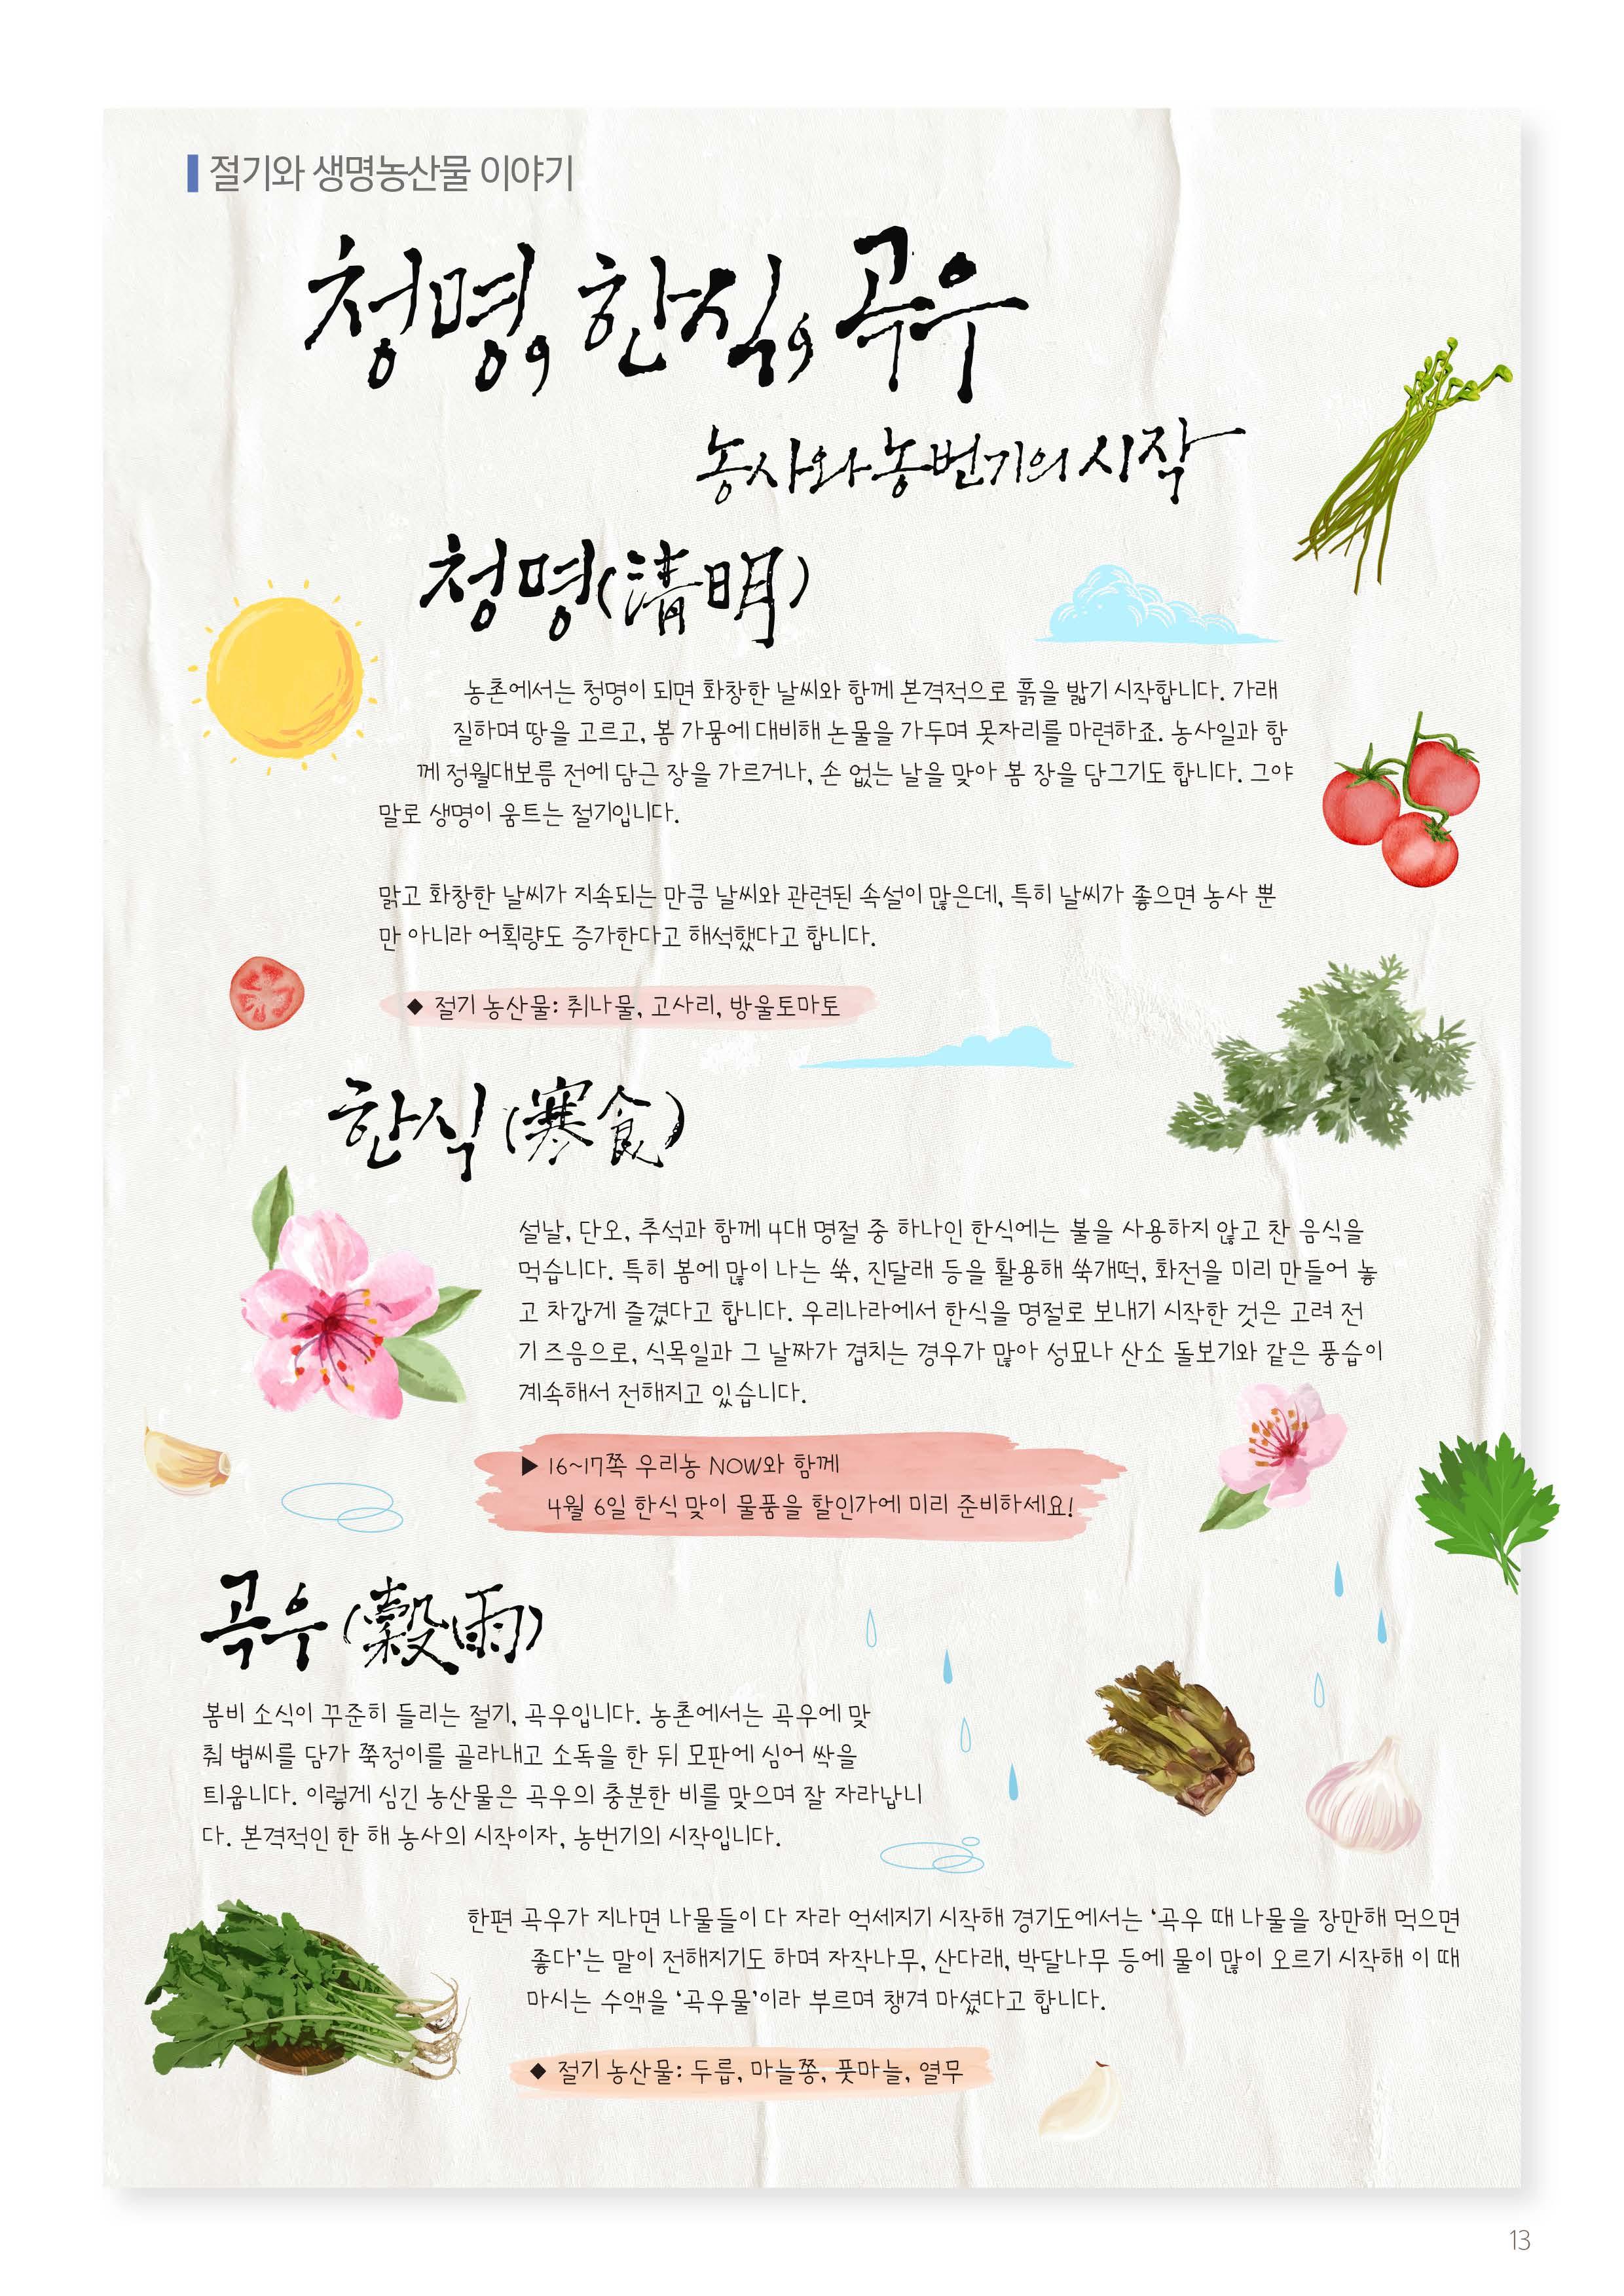 절기와 생명농산물 이야기
청명, 한식, 곡우
농사와 농번기의 시작
청명(淸明)
농촌에서는 청명이 되면 화창한 날씨와 함께 본격적으로 흙을 밟기 시작합니다. 가래
질하며 땅을 고르고, 봄 가뭄에 대비해 논물을 가두며 못자리를 마련하죠. 농사일과 함
께 정월대보름 전에 담근 장을 가르거나, 손 없는 날을 맞아 봄 장을 담그기도 합니다. 그야
말로 생명이 움트는 절기입니다.
맑고 화창한 날씨가 지속되는 만큼 날씨와 관련된 속설이 많은데, 특히 날씨가 좋으면 농사 뿐
만 아니라 어획량도 증가한다고 해석했다고 합니다.
◆ 절기 농산물: 취나물, 고사리, 방울토마토
한식(寒食)
설날, 단오, 추석과 함께 4대 명절 중 하나인 한식에는 불을 사용하지 않고 찬 음식을
먹습니다. 특히 봄에 많이 나는 쑥, 진달래 등을 활용해 쑥개떡, 화전을 미리 만들어 놓
고 차갑게 즐겼다고 합니다. 우리나라에서 한식을 명절로 보내기 시작한 것은 고려 전
기 즈음으로, 식목일과 그 날짜가 겹치는 경우가 많아 성묘나 산소 돌보기와 같은 풍습이
계속해서 전해지고 있습니다.
▶ 16~17쪽 우리농 NOW와 함께
4월 6일 한식 맞이 물품을 할인가에 미리 준비하세요!
곡우(穀雨)
봄비 소식이 꾸준히 들리는 절기, 곡우입니다. 농촌에서는 곡우에 맞
춰 볍씨를 담가 쭉정이를 골라내고 소독을 한 뒤 모판에 심어 싹을
틔웁니다. 이렇게 심긴 농산물은 곡우의 충분한 비를 맞으며 잘 자라납니
다. 본격적인 한 해 농사의 시작이자, 농번기의 시작입니다.
한편 곡우가 지나면 나물들이 다 자라 억세지기 시작해 경기도에서는 ‘곡우 때 나물을 장만해 먹으면
좋다’는 말이 전해지기도 하며 자작나무, 산다래, 박달나무 등에 물이 많이 오르기 시작해 이 때
마시는 수액을 ‘곡우물’이라 부르며 챙겨 마셨다고 합니다.
◆ 절기 농산물: 두릅, 마늘쫑, 풋마늘, 열무
13